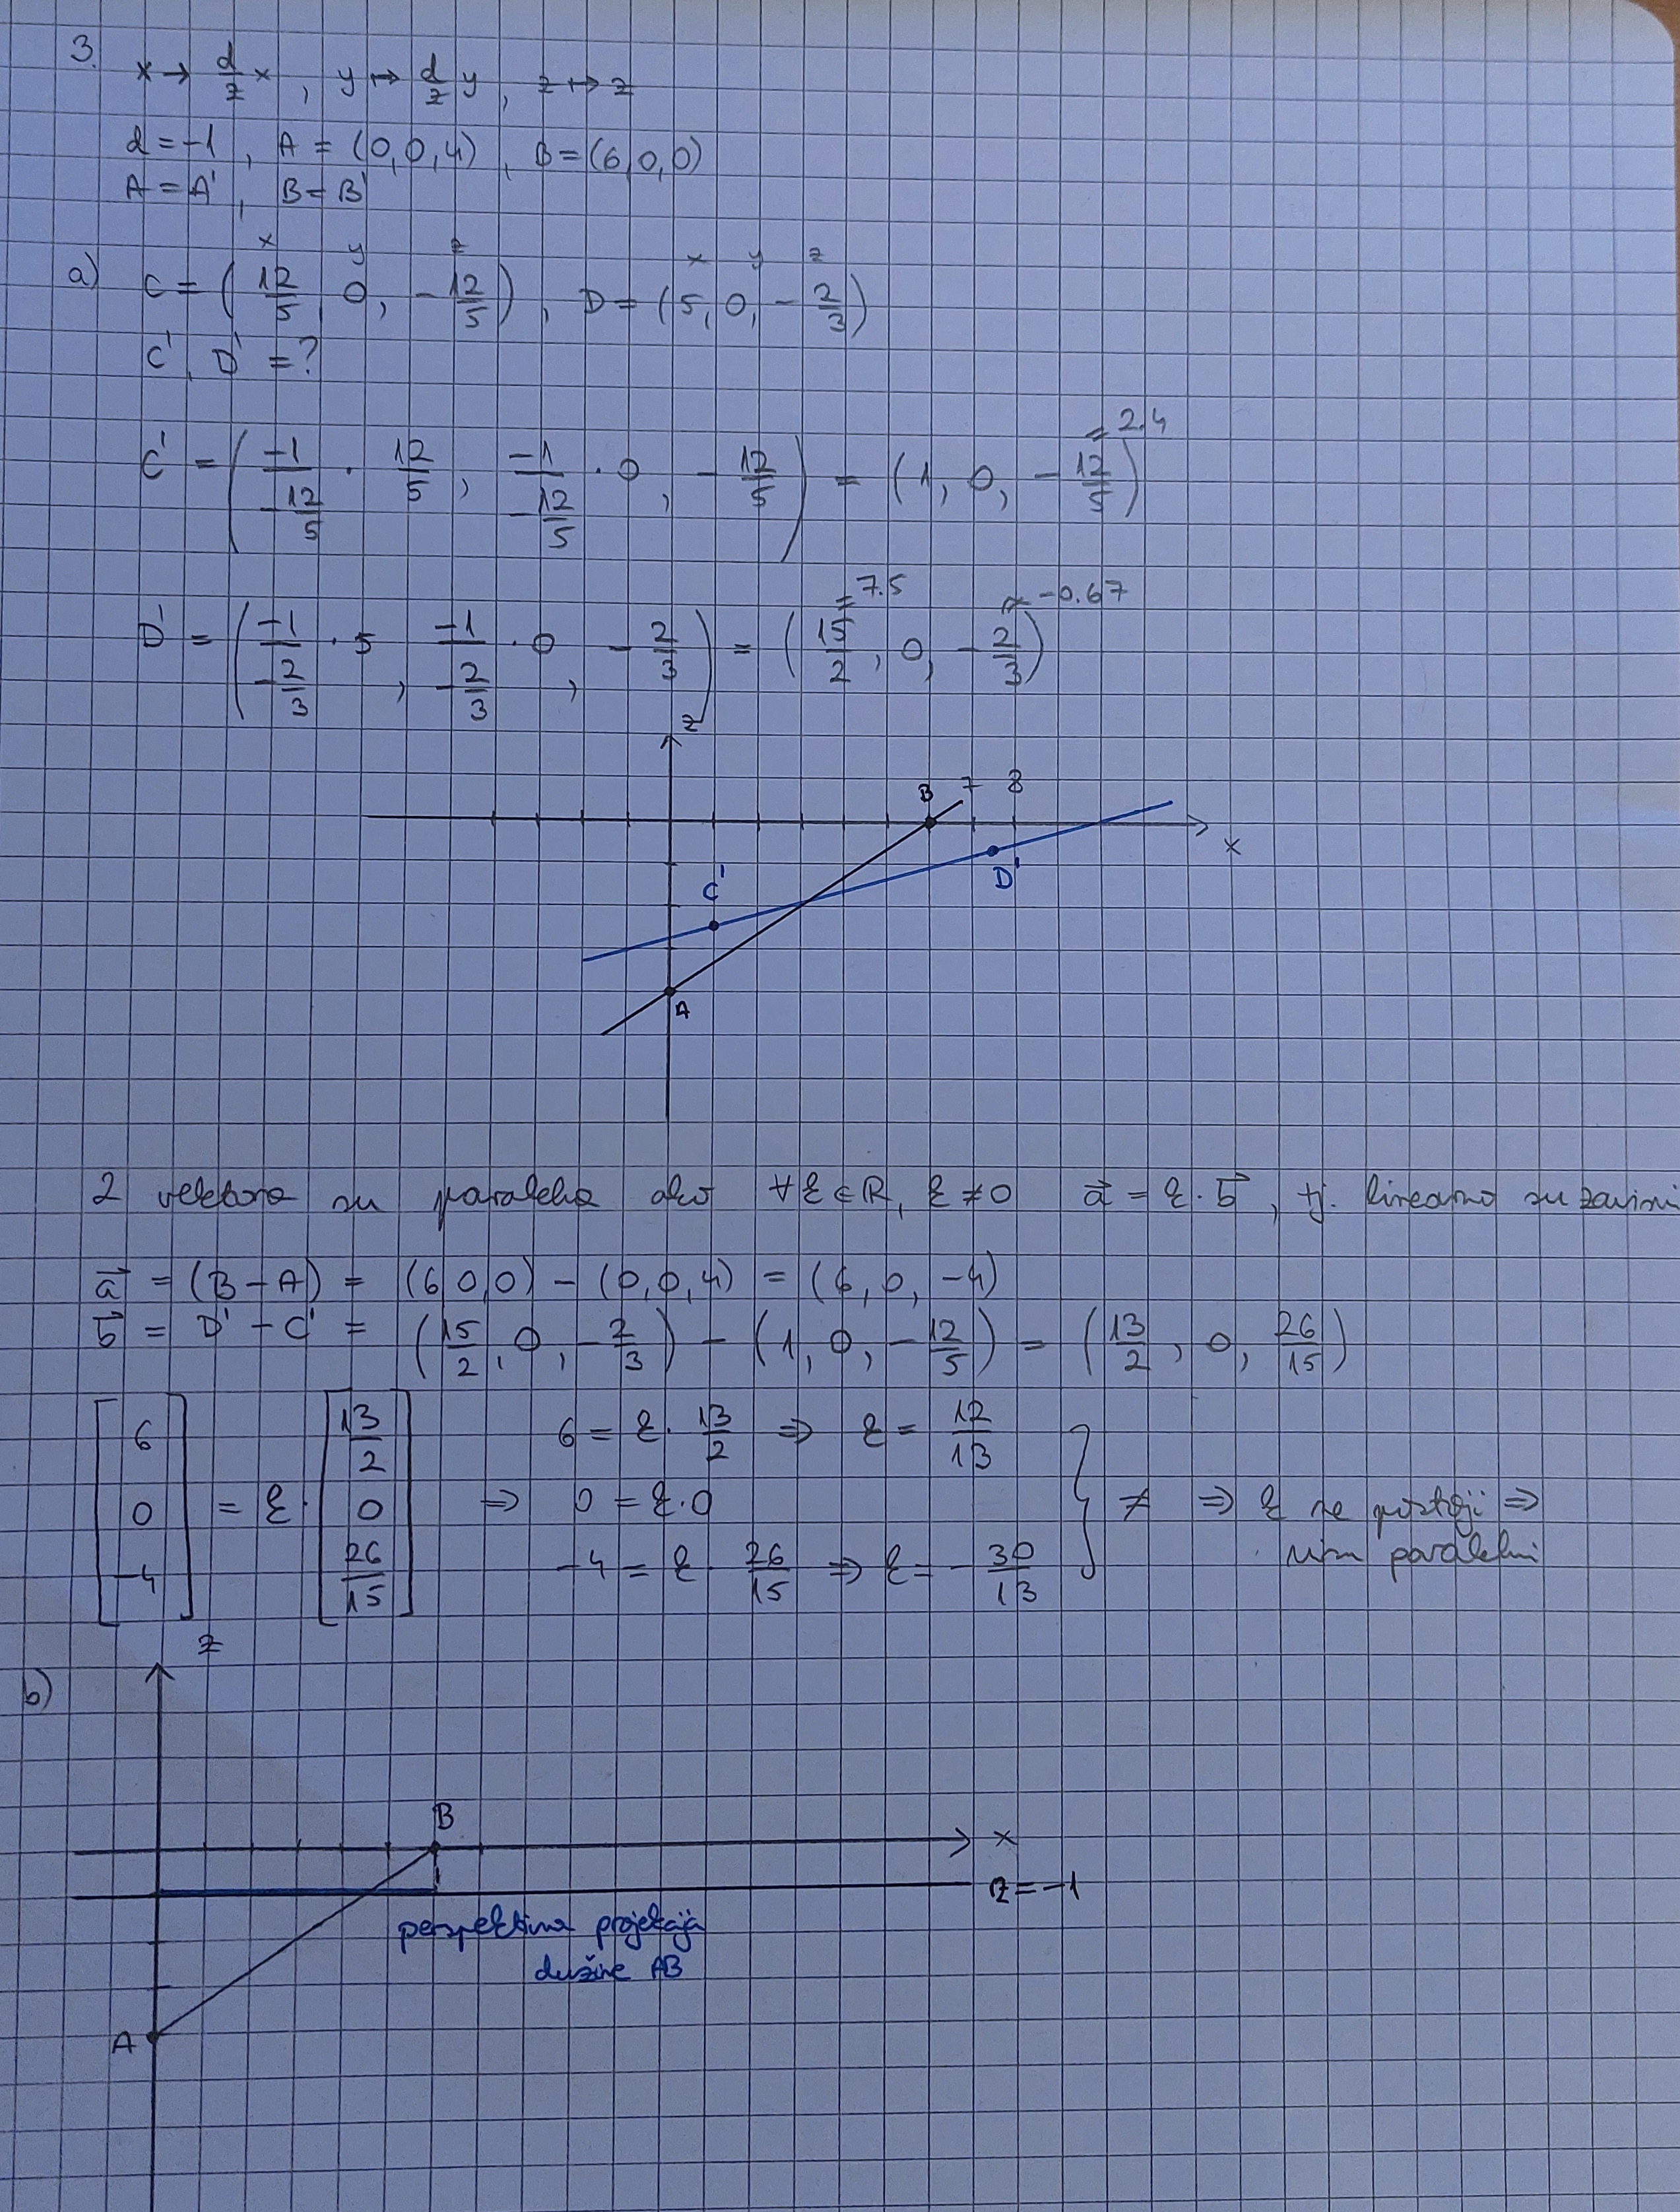 3. x → d/z x, y ↦ d/z y, z ↦ z
d = -1, A = (0,0,4), B = (6,0,0)
A = A', B = B'
x y z x y z
a) C = (12/5, 0, -12/5), D = (5, 0, -2/3)
C', D' = ?
= 2.4
C' = (-1/(-12/5) · 12/5, -1/(-12/5) · 0, -12/5) = (1, 0, -12/5)
= 7.5 ≈ -0.67
D' = (-1/(-2/3) · 5, -1/(-2/3) · 0, -2/3) = (15/2, 0, -2/3)
z
B 7 8
x
C' D'
A
2 vektora su paralelna ako ∀k∈R, k ≠ 0 a⃗ = k · b⃗, tj. linearno su zavisni
a⃗ = (B - A) = (6,0,0) - (0,0,4) = (6, 0, -4)
b⃗ = D' - C' = (15/2, 0, -2/3) - (1, 0, -12/5) = (13/2, 0, 26/15)
[6 0 -4] = k · [13/2 0 26/15]
6 = k · 13/2 ⇒ k = 12/13
⇒ 0 = k · 0 } ≠ ⇒ k ne postoji ⇒
-4 = k · 26/15 ⇒ k = -30/13 nisu paralelni
z
b)
B
x
z = -1
perspektivna projekcija
dužine AB
A